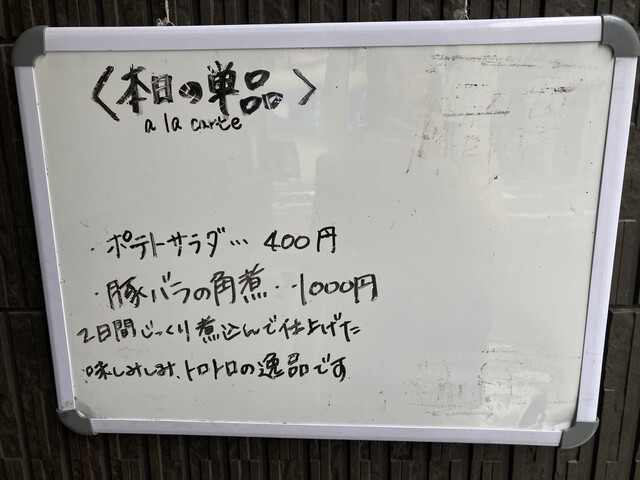 〈本日の単品〉
a la carte
・ポテトサラダ… 400円
・豚バラの角煮・・1000円
2日間じっくり煮込んで仕上げた
味しみしみ、トロトロの逸品です